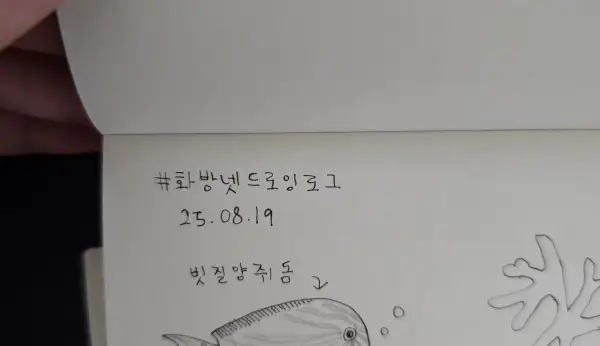 #화방넷드로잉로그
25.08.19
빗질양쥐돔